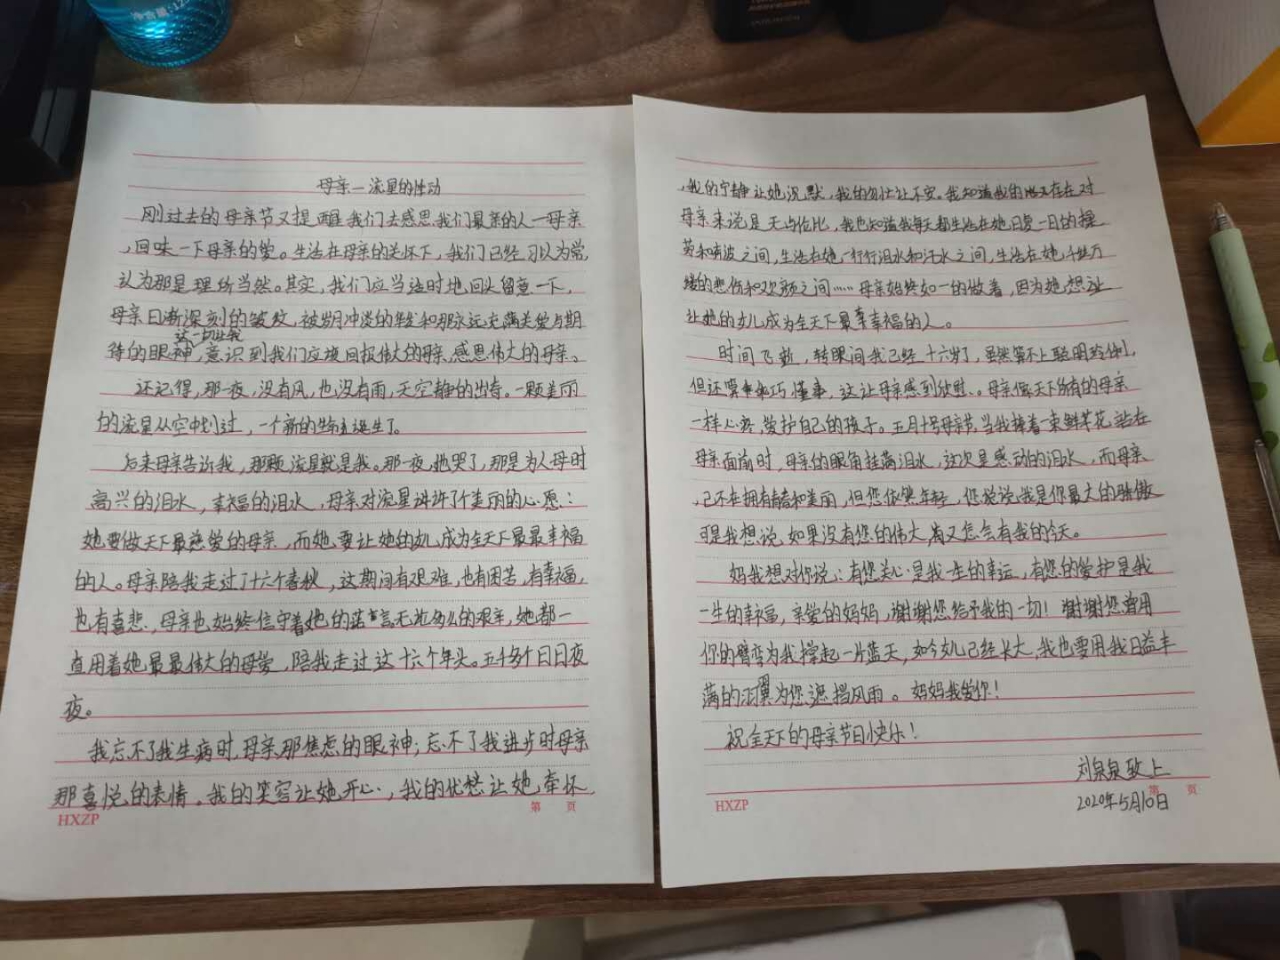 净含量:12
母亲一流星的悸动
刚过去的母亲节又提醒我们去感恩我们最亲的人一母亲
,回味一下母亲的爱。生活在母亲的关怀下,我们已经习以为常,
认为那是理所当然。其实,我们应当适时地回头留意一下,
母亲日渐深刻的皱纹,被岁月冲淡的年华和那永远充满关爱与期
这一切让我
待的眼神,意识到我们应该回报伟大的母亲,感恩伟大的母亲。
还记得,那一夜,没有风,也没有雨,天空静的出奇。一颗美丽
的流星从空中划过,一个新的生命诞生了。
后来母亲告诉我,那颗流星就是我。那一夜,她哭了,那是为人母时
高兴的泪水,幸福的泪水,母亲对流星许了个美丽的心愿:
她要做天下最慈爱的母亲,而她要让她的女儿成为全天下最最幸福
的人。母亲陪我走过了十六个春秋,这期间有艰难,也有困苦,有幸福,
也有喜悲,母亲也始终信守着她的诺言无论多么的艰辛,她都一
直用着她最最伟大的母爱,陪我走过这十六个年头。五千多个日日夜
夜。
我忘不了我生病时,母亲那焦虑的眼神;忘不了我进步时母亲
那喜悦的表情。我的笑容让她开心,我的忧愁让她牵怀
HXZP
第 页
,我的宁静让她沉默,我的匆忙让不安。我知道我的存在对
母亲来说是无与伦比,我也知道我每天都生活在她日复一日的操
劳和奔波之间,生活在她一行行泪水和汗水之间,生活在她千丝万
缕的悲伤和欢颜之间……母亲始终如一的做着,因为她想让
让她的女儿成为全天下最幸福的人。
时间飞逝,转眼间我已经十六岁了,虽然算不上聪明伶俐,
但还算乖巧懂事,这让母亲感到欣慰。母亲像天下所有的母亲
一样心疼,爱护自己的孩子。五月十号母亲节,当我捧着一束鲜花,站在
母亲面前时,母亲的眼角挂满泪水,这次是感动的泪水,而母亲
,已不在拥有青春和美丽,但您依然年轻,您总说我是你最大的骄傲
可是我想说,如果没有您的伟大,又怎会有我的今天。
妈我想对你说:有您关心是我一生的幸运,有您的爱护是我
一生的幸福,亲爱的妈妈,谢谢您给予我的一切!谢谢您曾用
你的臂弯为我撑起一片蓝天,如今女儿已经长大,我也要用我日益丰
满的羽翼为您遮挡风雨。妈妈我爱你!
祝全天下的母亲节日快乐!
刘泉泉致上
2020年5月10日
HXZP
第 页